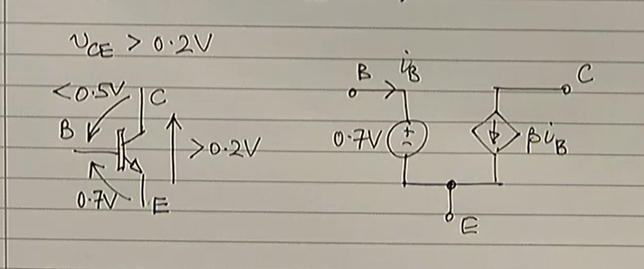 υCE > 0.2V
<0.5V C
B >0.2V
0.7V E
B iB C
0.7V + - βiB
E